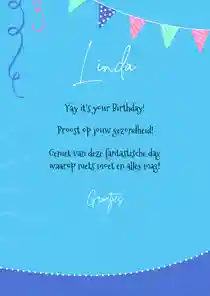 Linda
Yay it's your Birthday!
Proost op jouw gezondheid!
Geniet van deze fantastische dag
waarop niets moet en alles mag!
Groetjes